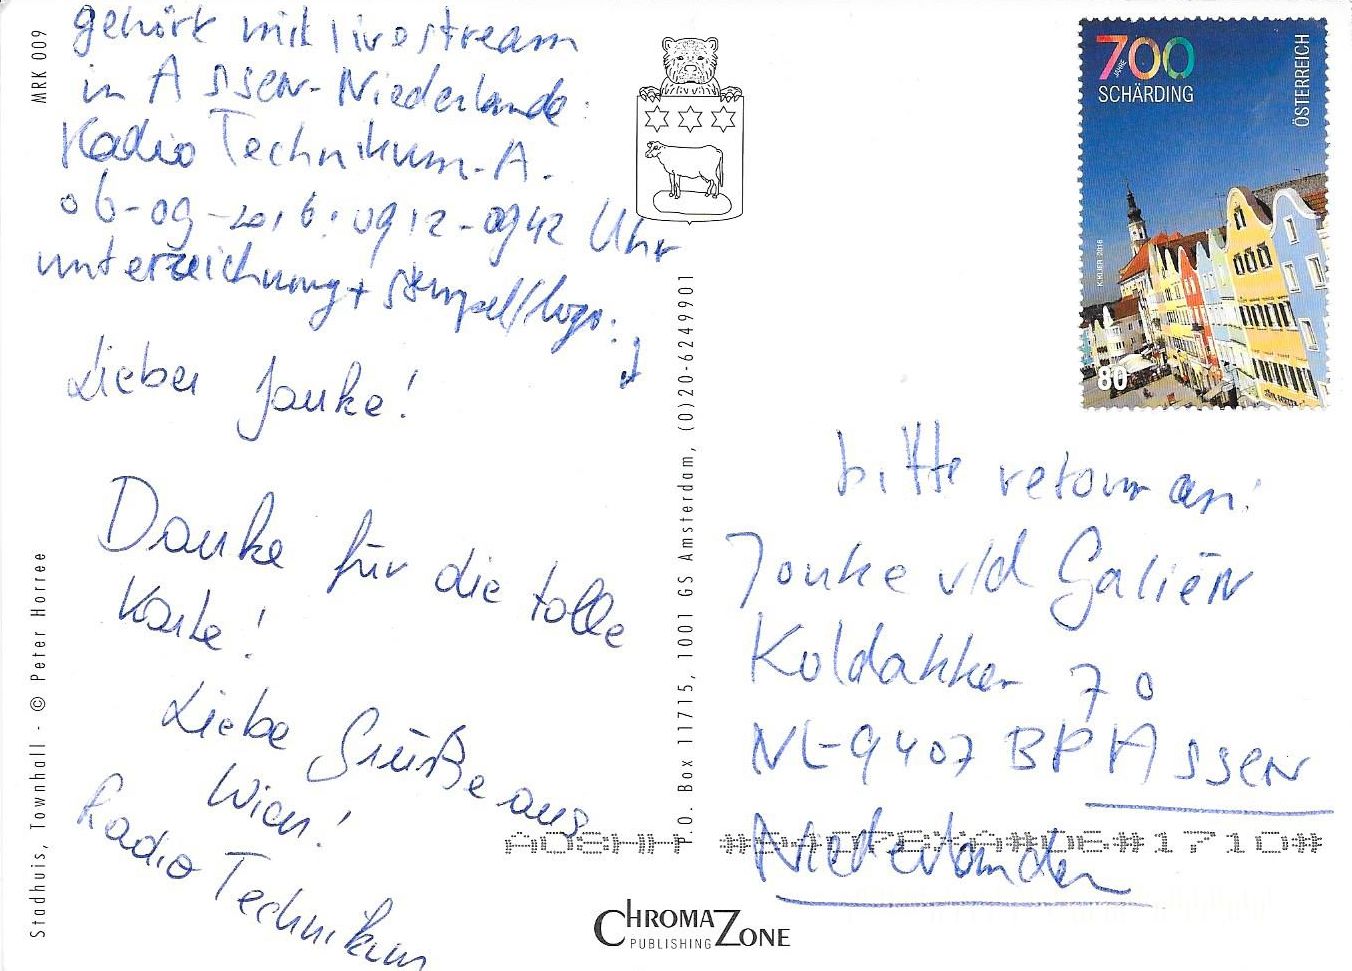 gehört mit livestream
in Assen-Niederlande:
Radio Technikum-A.
06-09-2016: 0912-0942 Uhr
unterzeichnung + stempel/logo:
Lieber Jouke!
Danke für die tolle
Karte!
Liebe Grüße aus
Wien!
Radio Technikum
MRK 009
Stadhuis, Townhall - © Peter Horree
P.O. Box 11715, 1001 GS Amsterdam, (0)20-6249901
CHROMAZONE
PUBLISHING
700
JAHRE
SCHÄRDING
ÖSTERREICH
K.KUER 2016
80
bitte retour an:
Jouke v/d Galiën
Koldakker 70
NL-9407 BP Assen
Niederlanden